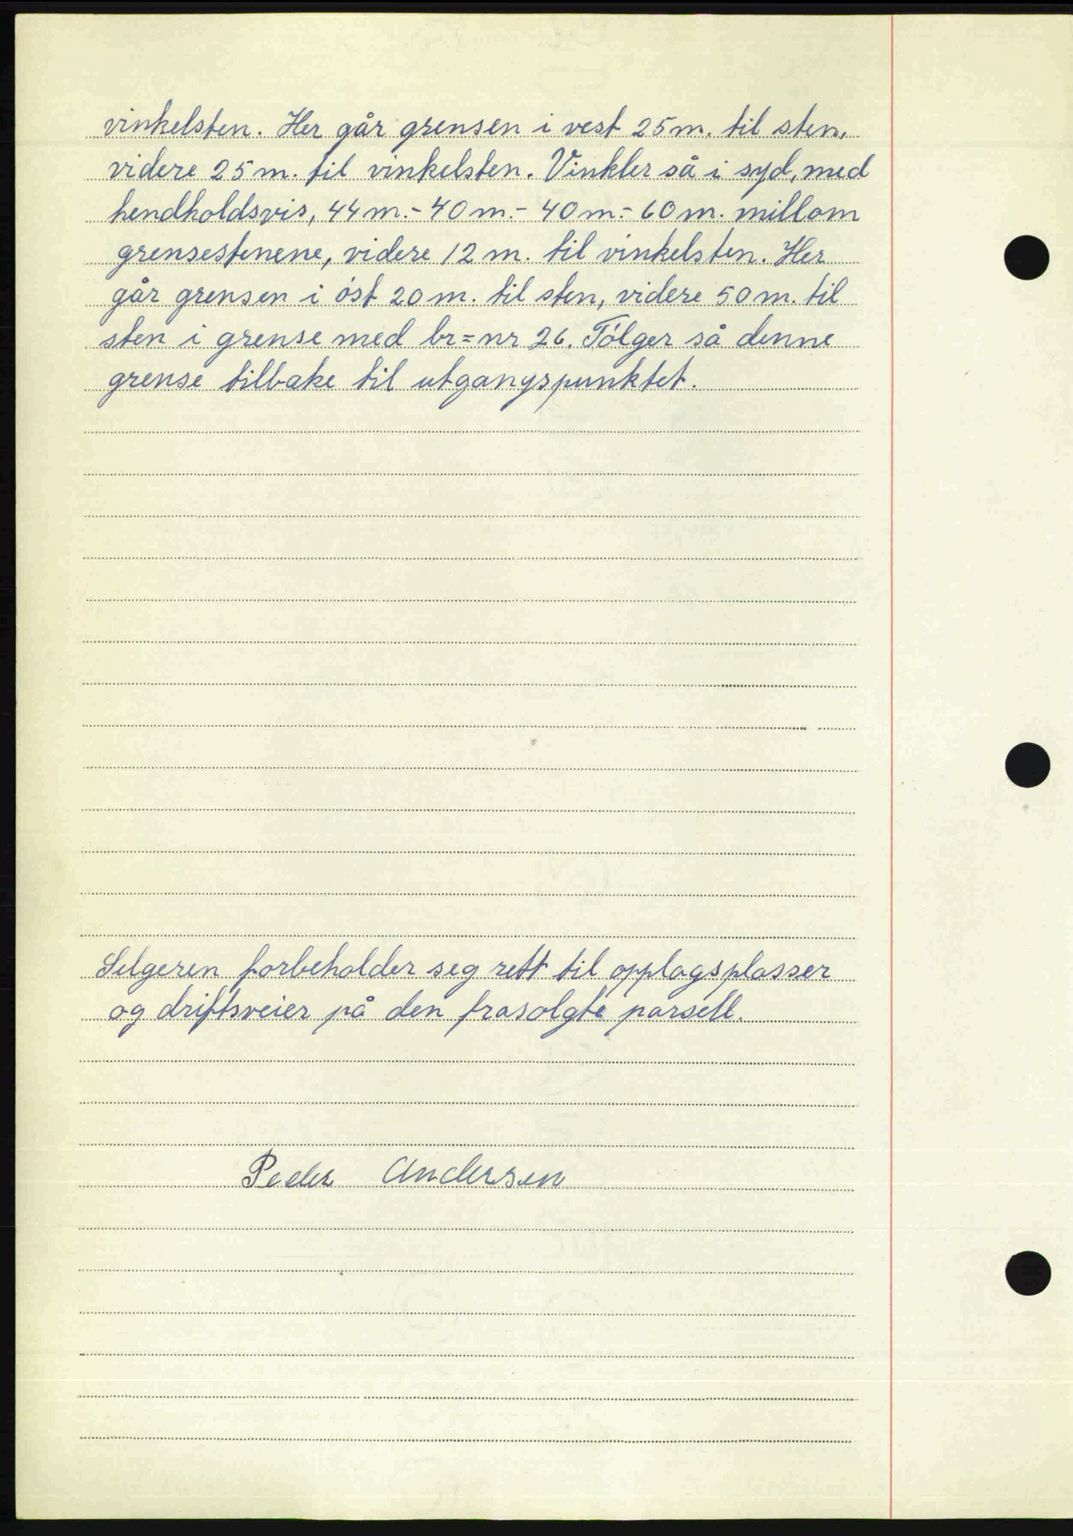 vinkelsten. Her går grensen i vest 25 m. til sten,
videre 25 m. til vinkelsten. Vinkler så i syd, med
hendholdsvis, 44 m.- 40 m.- 40 m.- 60 m. millom
grensestenene, videre 12 m. til vinkelsten. Her
går grensen i øst 20 m. til sten, videre 50 m. til
sten i grense med br=nr 26. Følger så denne
grense tilbake til utgangspunktet.
Selgeren forbeholder seg rett til opplagsplasser
og driftsveier på den frasolgte parsell.
Peder Andersen